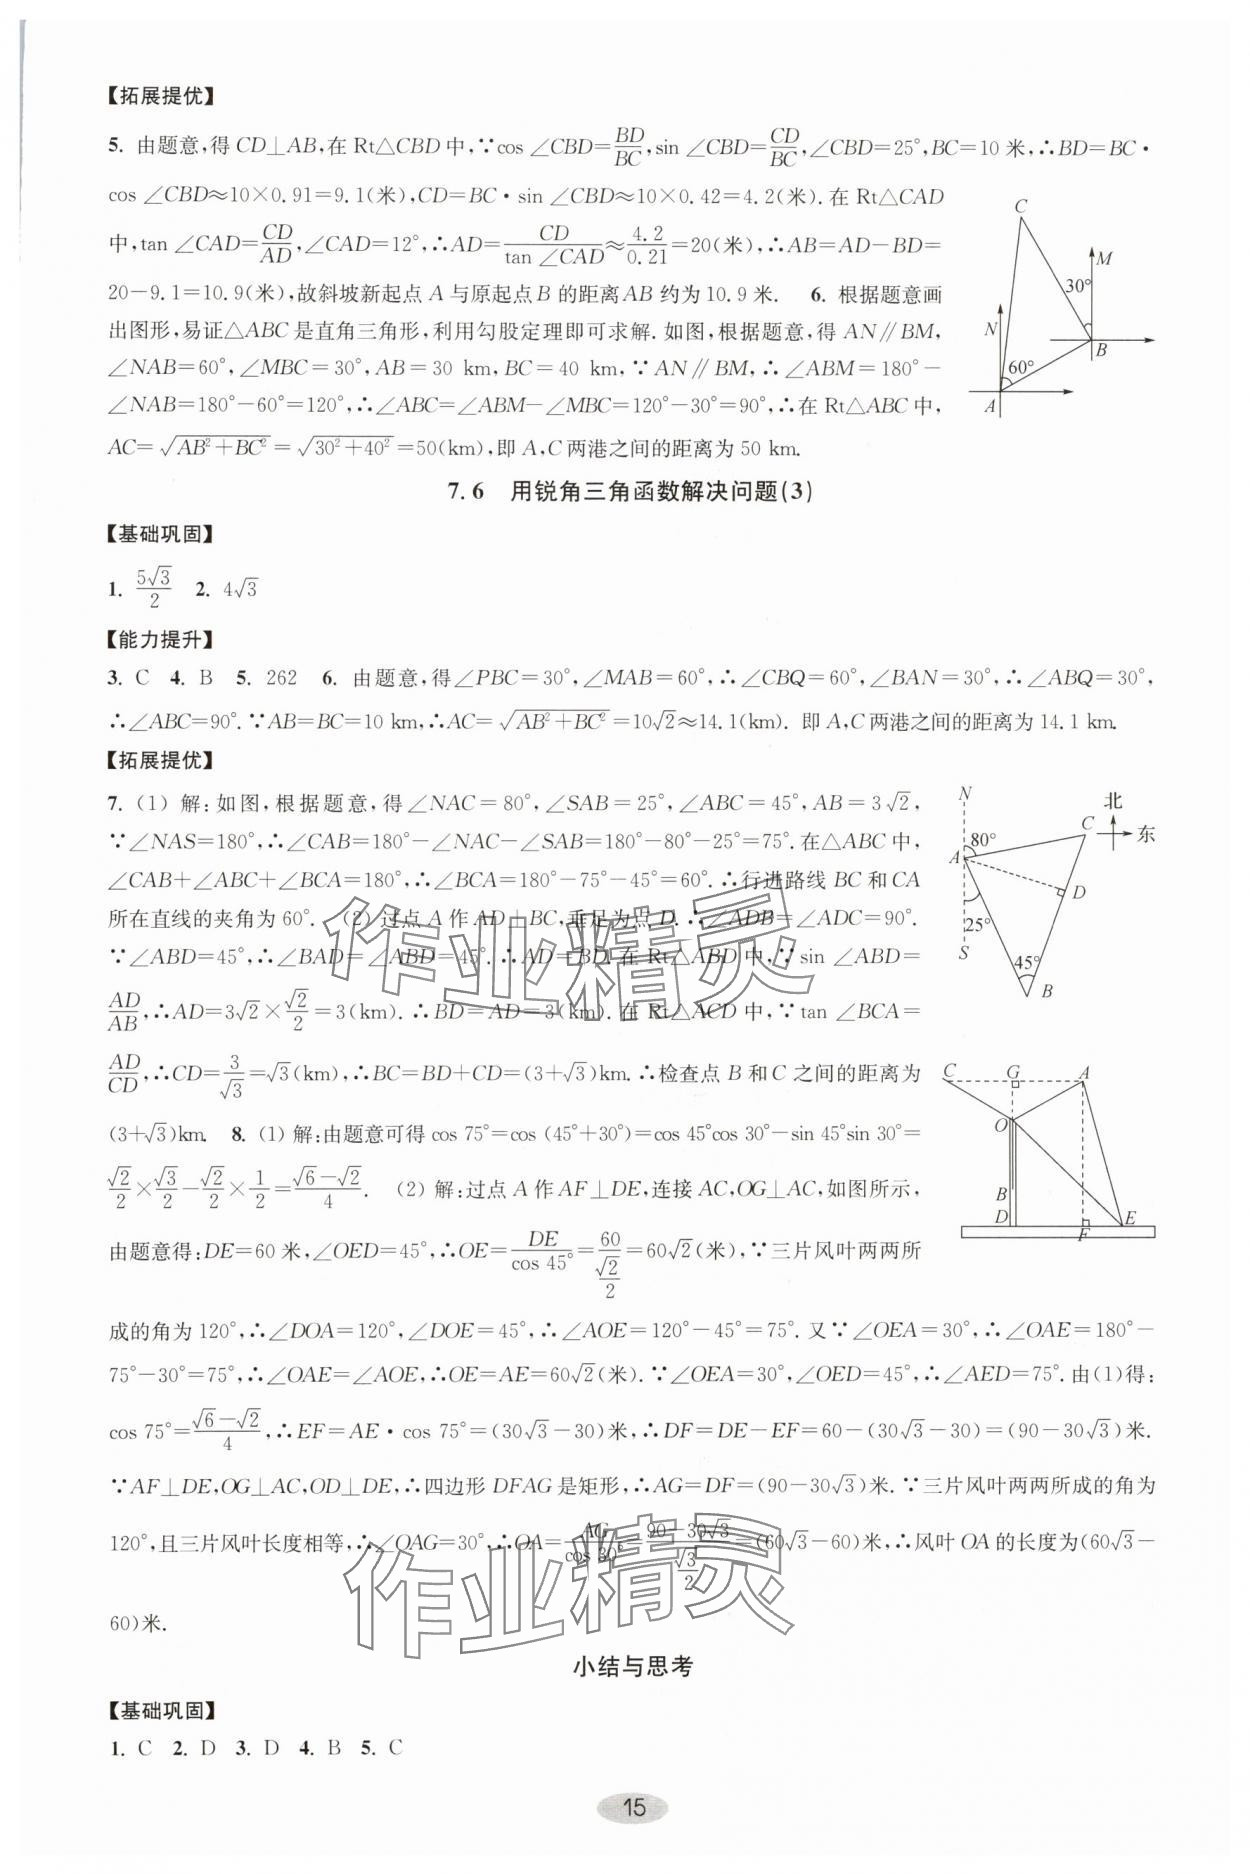 【拓展提优】
5. 由题意,得 CD⊥AB,在 Rt△CBD 中,∵cos ∠CBD=BD/BC,sin ∠CBD=CD/BC,∠CBD=25°,BC=10 米,∴BD=BC·
cos ∠CBD≈10×0.91=9.1(米),CD=BC·sin ∠CBD≈10×0.42=4.2(米).在 Rt△CAD
中,tan ∠CAD=CD/AD,∠CAD=12°,∴AD=CD/tan ∠CAD≈4.2/0.21=20(米),∴AB=AD−BD=
20−9.1=10.9(米),故斜坡新起点 A 与原起点 B 的距离 AB 约为 10.9 米. 6. 根据题意画
出图形,易证△ABC 是直角三角形,利用勾股定理即可求解.如图,根据题意,得 AN∥BM,
∠NAB=60°,∠MBC=30°,AB=30 km,BC=40 km,∵AN∥BM,∴∠ABM=180°−
∠NAB=180°−60°=120°,∴∠ABC=∠ABM−∠MBC=120°−30°=90°,∴在 Rt△ABC 中,
AC=√(AB²+BC²)=√(30²+40²)=50(km),即 A,C 两港之间的距离为 50 km.
C
M
30°
N
B
60°
A
7.6 用锐角三角函数解决问题(3)
【基础巩固】
1. 5√3/2 2. 4√3
【能力提升】
3. C 4. B 5. 262 6. 由题意,得∠PBC=30°,∠MAB=60°,∴∠CBQ=60°,∠BAN=30°,∴∠ABQ=30°,
∴∠ABC=90°.∵AB=BC=10 km,∴AC=√(AB²+BC²)=10√2≈14.1(km). 即 A,C 两港之间的距离为 14.1 km.
【拓展提优】
7. (1) 解:如图,根据题意,得∠NAC=80°,∠SAB=25°,∠ABC=45°,AB=3√2,
∵∠NAS=180°,∴∠CAB=180°−∠NAC−∠SAB=180°−80°−25°=75°.在△ABC 中,
∠CAB+∠ABC+∠BCA=180°,∴∠BCA=180°−75°−45°=60°.∴行进路线 BC 和 CA
所在直线的夹角为 60°. (2) 过点 A 作 AD⊥BC,垂足为点 D.∴∠ADB=∠ADC=90°.
∵∠ABD=45°,∴∠BAD=∠ABD=45°.∴AD=BD.在 Rt△ABD 中,∵sin ∠ABD=
AD/AB,∴AD=3√2×√2/2=3(km).∴BD=AD=3(km).在 Rt△ACD 中,∵tan ∠BCA=
AD/CD,∴CD=3/√3=√3(km),∴BC=BD+CD=(3+√3)km.∴检查点 B 和 C 之间的距离为
(3+√3)km. 8. (1) 解:由题意可得 cos 75°=cos (45°+30°)=cos 45°cos 30°−sin 45°sin 30°=
√2/2×√3/2−√2/2×1/2=(√6−√2)/4. (2) 解:过点 A 作 AF⊥DE,连接 AC,OG⊥AC,如图所示,
由题意得:DE=60 米,∠OED=45°,∴OE=DE/cos 45°=60/(√2/2)=60√2(米),∵三片风叶两两所
成的角为 120°,∴∠DOA=120°,∠DOE=45°,∴∠AOE=120°−45°=75°.又∵∠OEA=30°,∴∠OAE=180°−
75°−30°=75°,∴∠OAE=∠AOE,∴OE=AE=60√2(米).∵∠OEA=30°,∠OED=45°,∴∠AED=75°.由(1)得:
cos 75°=(√6−√2)/4,∴EF=AE·cos 75°=(30√3−30)米,∴DF=DE−EF=60−(30√3−30)=(90−30√3)米.
∵AF⊥DE,OG⊥AC,OD⊥DE,∴四边形 DFAG 是矩形,∴AG=DF=(90−30√3)米.∵三片风叶两两所成的角为
120°,且三片风叶长度相等,∴∠OAG=30°,∴OA=AG/cos 30°=(90−30√3)/(√3/2)=(60√3−60)米,∴风叶 OA 的长度为(60√3−
60)米.
N
北
C
东
80°
A
D
25°
S
45°
B
C G A
O
B
D
F
E
作业精灵
作业精灵
小结与思考
【基础巩固】
1. C 2. D 3. D 4. B 5. C
15